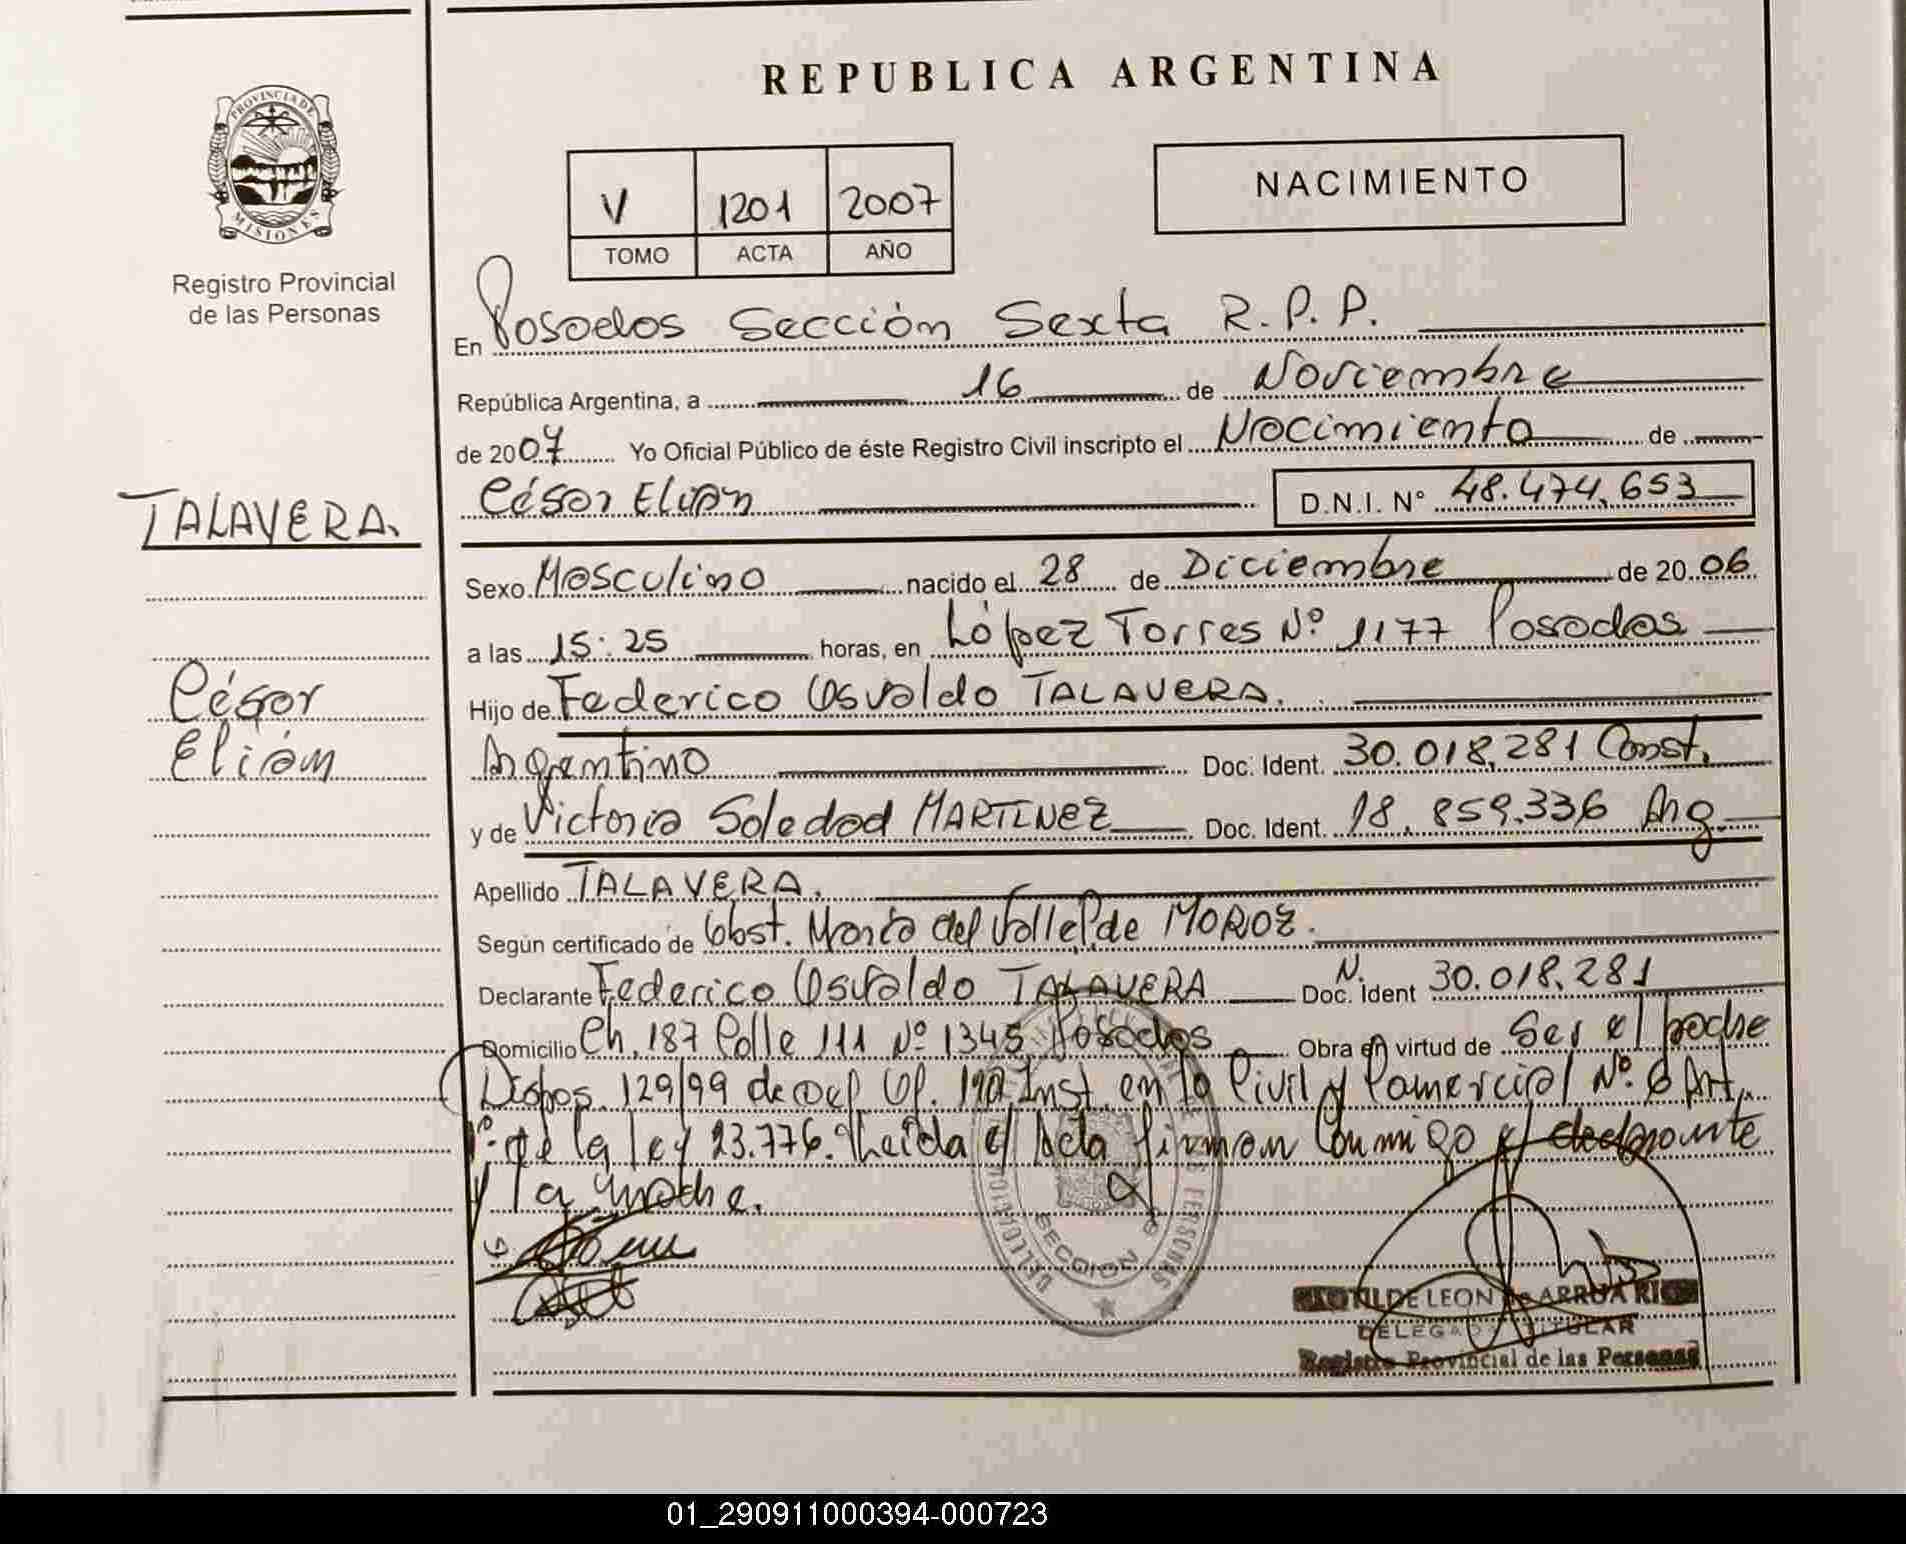 REPUBLICA ARGENTINA
PROVINCIA DE
MISIONES
Registro Provincial
de las Personas
V 1201 2007
TOMO ACTA AÑO
NACIMIENTO
En Posadas Sección Sexta R.P.P.
República Argentina, a 16 de Noviembre
de 2007 Yo Oficial Público de éste Registro Civil inscripto el Nacimiento de
TALAVERA.
César Elián D.N.I. N° 48.474.653
Sexo Masculino nacido el 28 de Diciembre de 2006
a las 15:25 horas, en López Torres Nº 1177 Posadas
César
Hijo de Federico Osvaldo TALAVERA.
Elián
Argentino Doc. Ident. 30.018.281 Const.
y de Victoria Soledad MARTINEZ Doc. Ident. 18.859.336 Arg.
Apellido TALAVERA.
Según certificado de Obst. María del Valle P. de MOROZ.
Declarante Federico Osvaldo TALAVERA N. Doc. Ident 30.018.281
Domicilio Ch. 187 Calle 111 Nº 1345 Posadas Obra en virtud de Ser el padre
Dispos. 129/99 Inst. en lo Civil y Comercial Nº 6 Art.
1º de la ley 23.776. Leída el Acta firman conmigo el declarante
y la madre.
SECCION 6
CLOTILDE LEON de ARRUA RIOS
DELEGADA TITULAR
Registro Provincial de las Personas
01_290911000394-000723